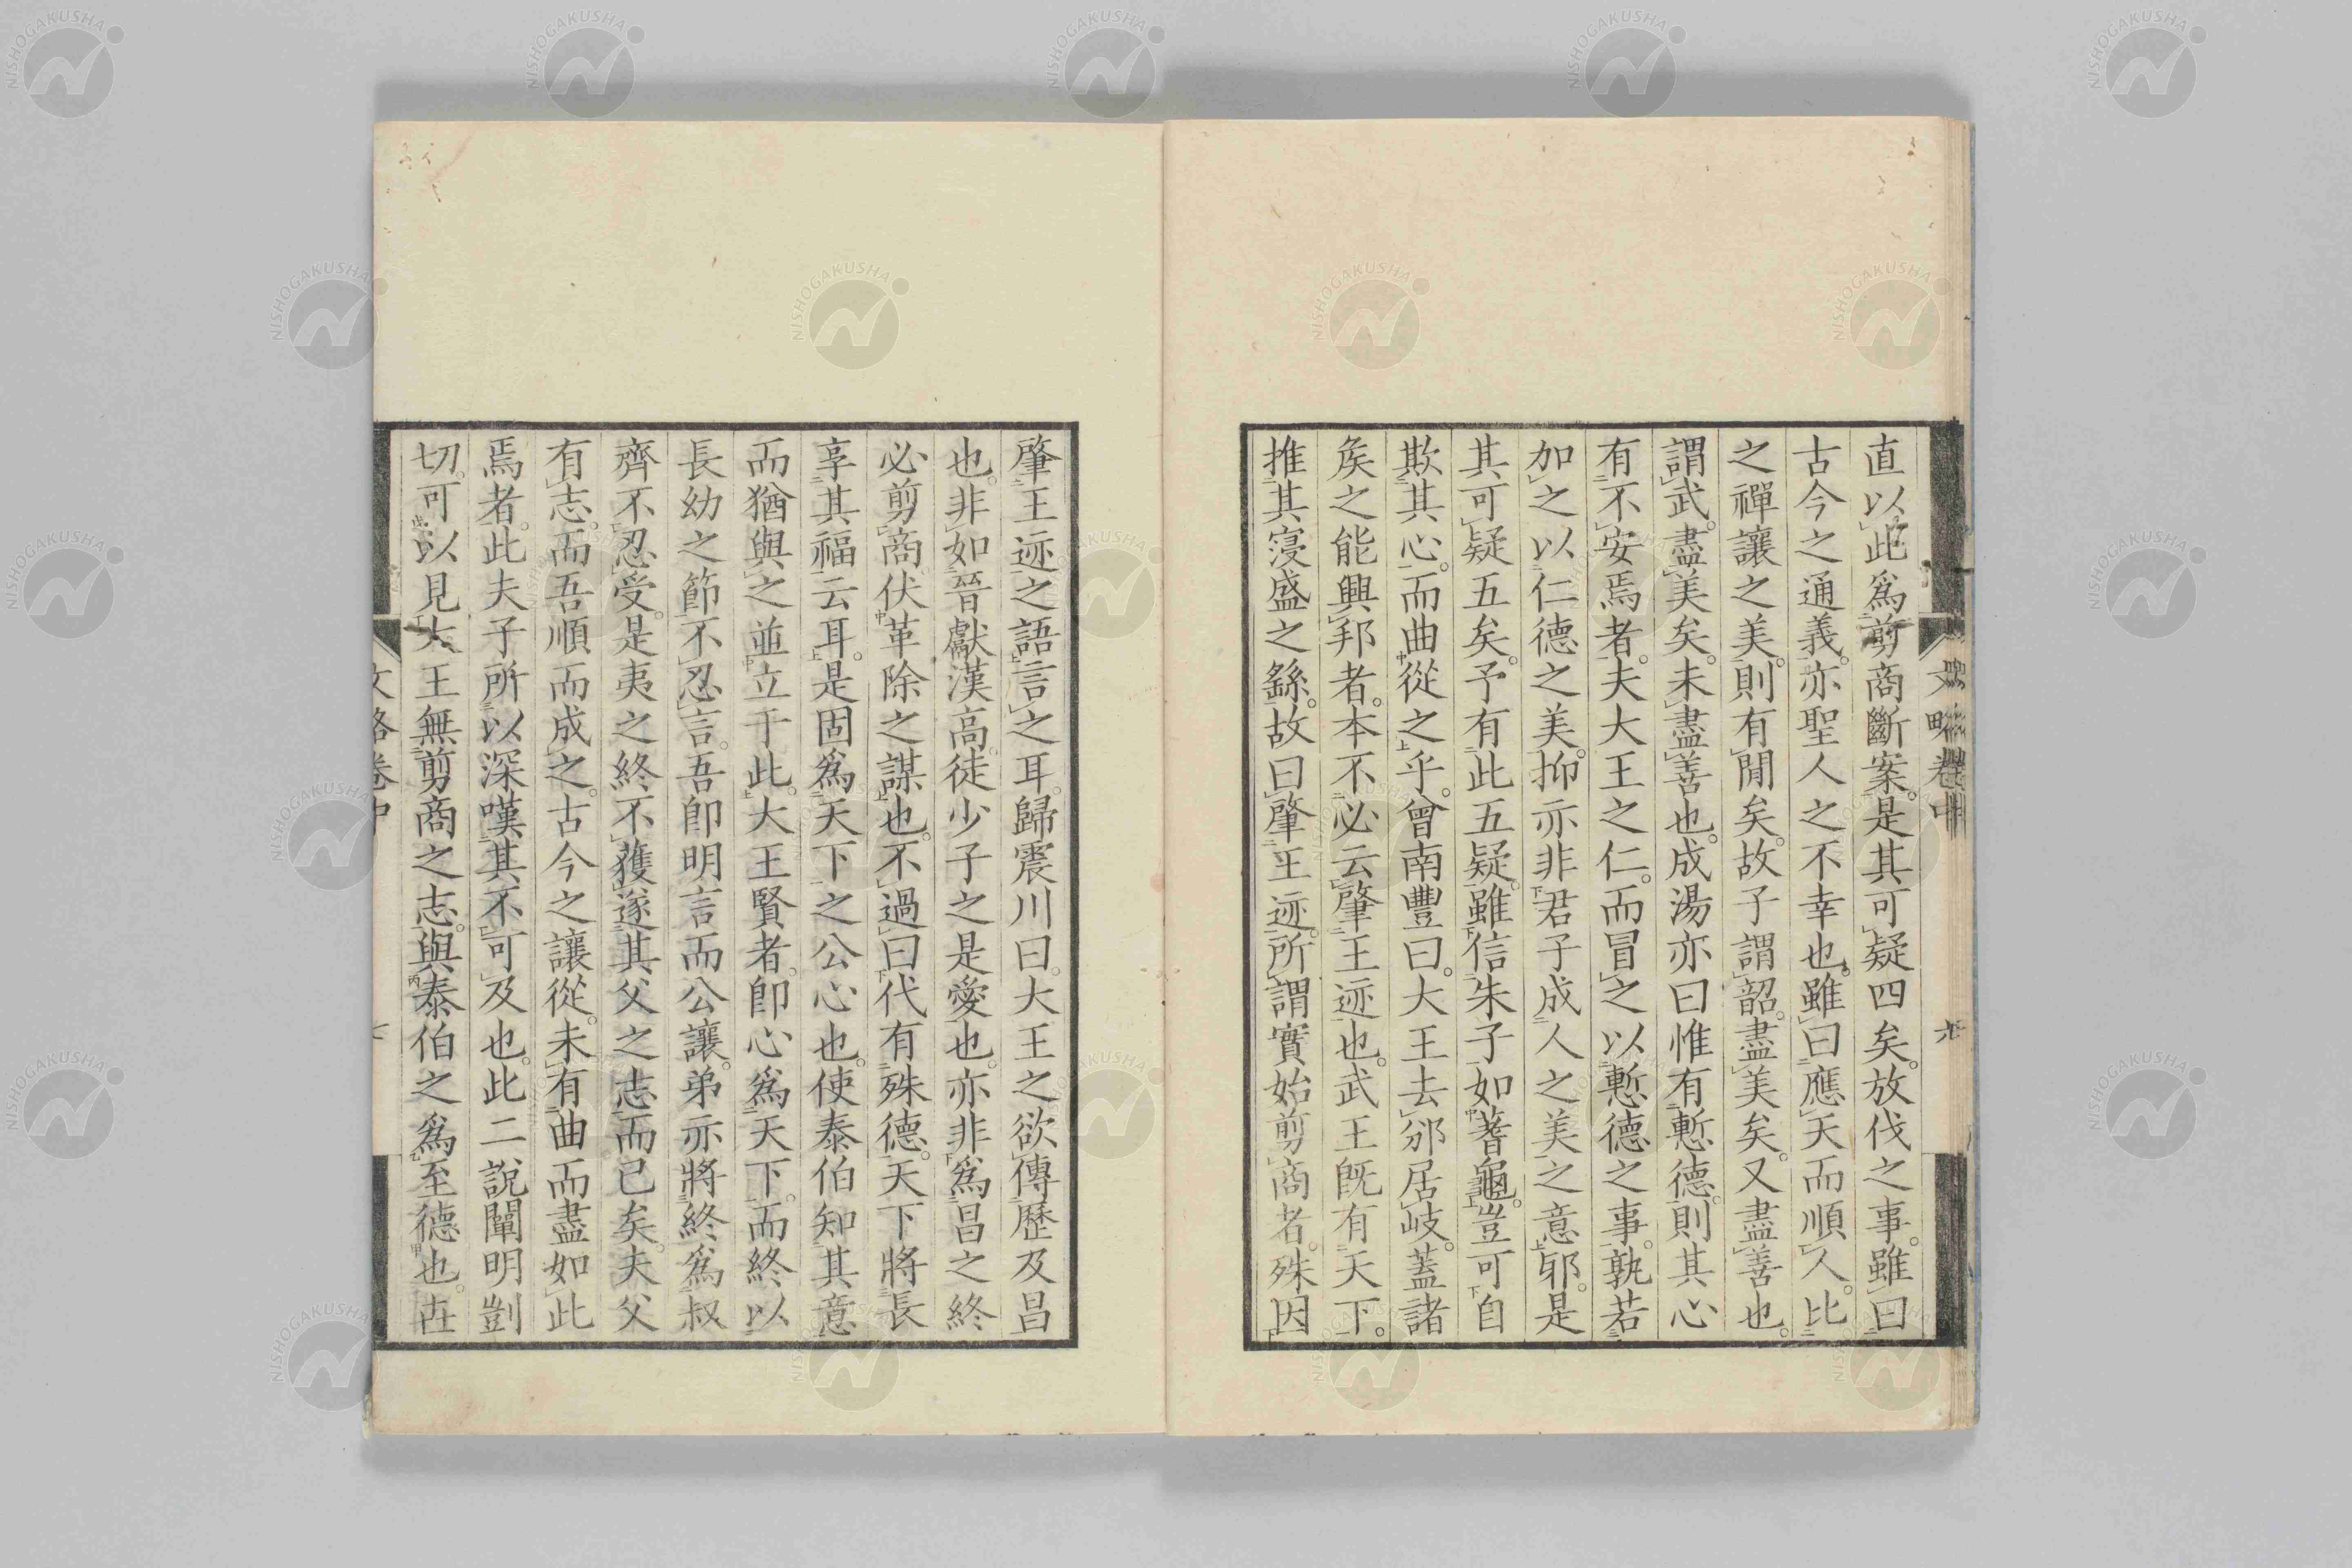 直以此爲剪商斷案。是其可疑四矣。放伐之事。雖曰
古今之通義。亦聖人之不幸也。雖曰應天而順人。比
之禪讓之美。則有閒矣。故子謂韶。盡美矣。又盡善也。
謂武。盡美矣。未盡善也。成湯亦曰惟有慙德。則其心
有不安焉者。夫大王之仁。而冒之以慙德之事。孰若
加之以仁德之美。抑亦非君子成人之美之意邪。是
其可疑五矣。予有此五疑。雖信朱子如蓍龜。豈可自
欺其心。而曲從之乎。曾南豐曰。大王去邠居岐。蓋諸
矦之能興邦者。本不必云肇王迹也。武王旣有天下。
推其寖盛之繇。故曰肇王迹。所謂實始剪商者。殊因
肇王迹之語言之耳。歸震川曰。大王之欲傳歷及昌
也。非如晉獻漢高。徒少子之是愛也。亦非爲昌之終
必剪商。伏革除之謀也。不過曰代有殊德。天下將長
享其福云耳。是固爲天下之公心也。使泰伯知其意
而猶與之並立于此。大王賢者。卽心爲天下。而終以
長幼之節不忍言。吾卽明言而公讓。弟亦將終爲叔
齊不忍受。是夷之終不獲遂其父之志而已矣。夫父
有志。而吾順而成之。古今之讓從。未有曲而盡如此
焉者。此夫子所以深嘆其不可及也。此二說闡明剴
切。可以見大王無剪商之志。與泰伯之爲至德也。在
文略卷中
九
NISHOGAKUSHA